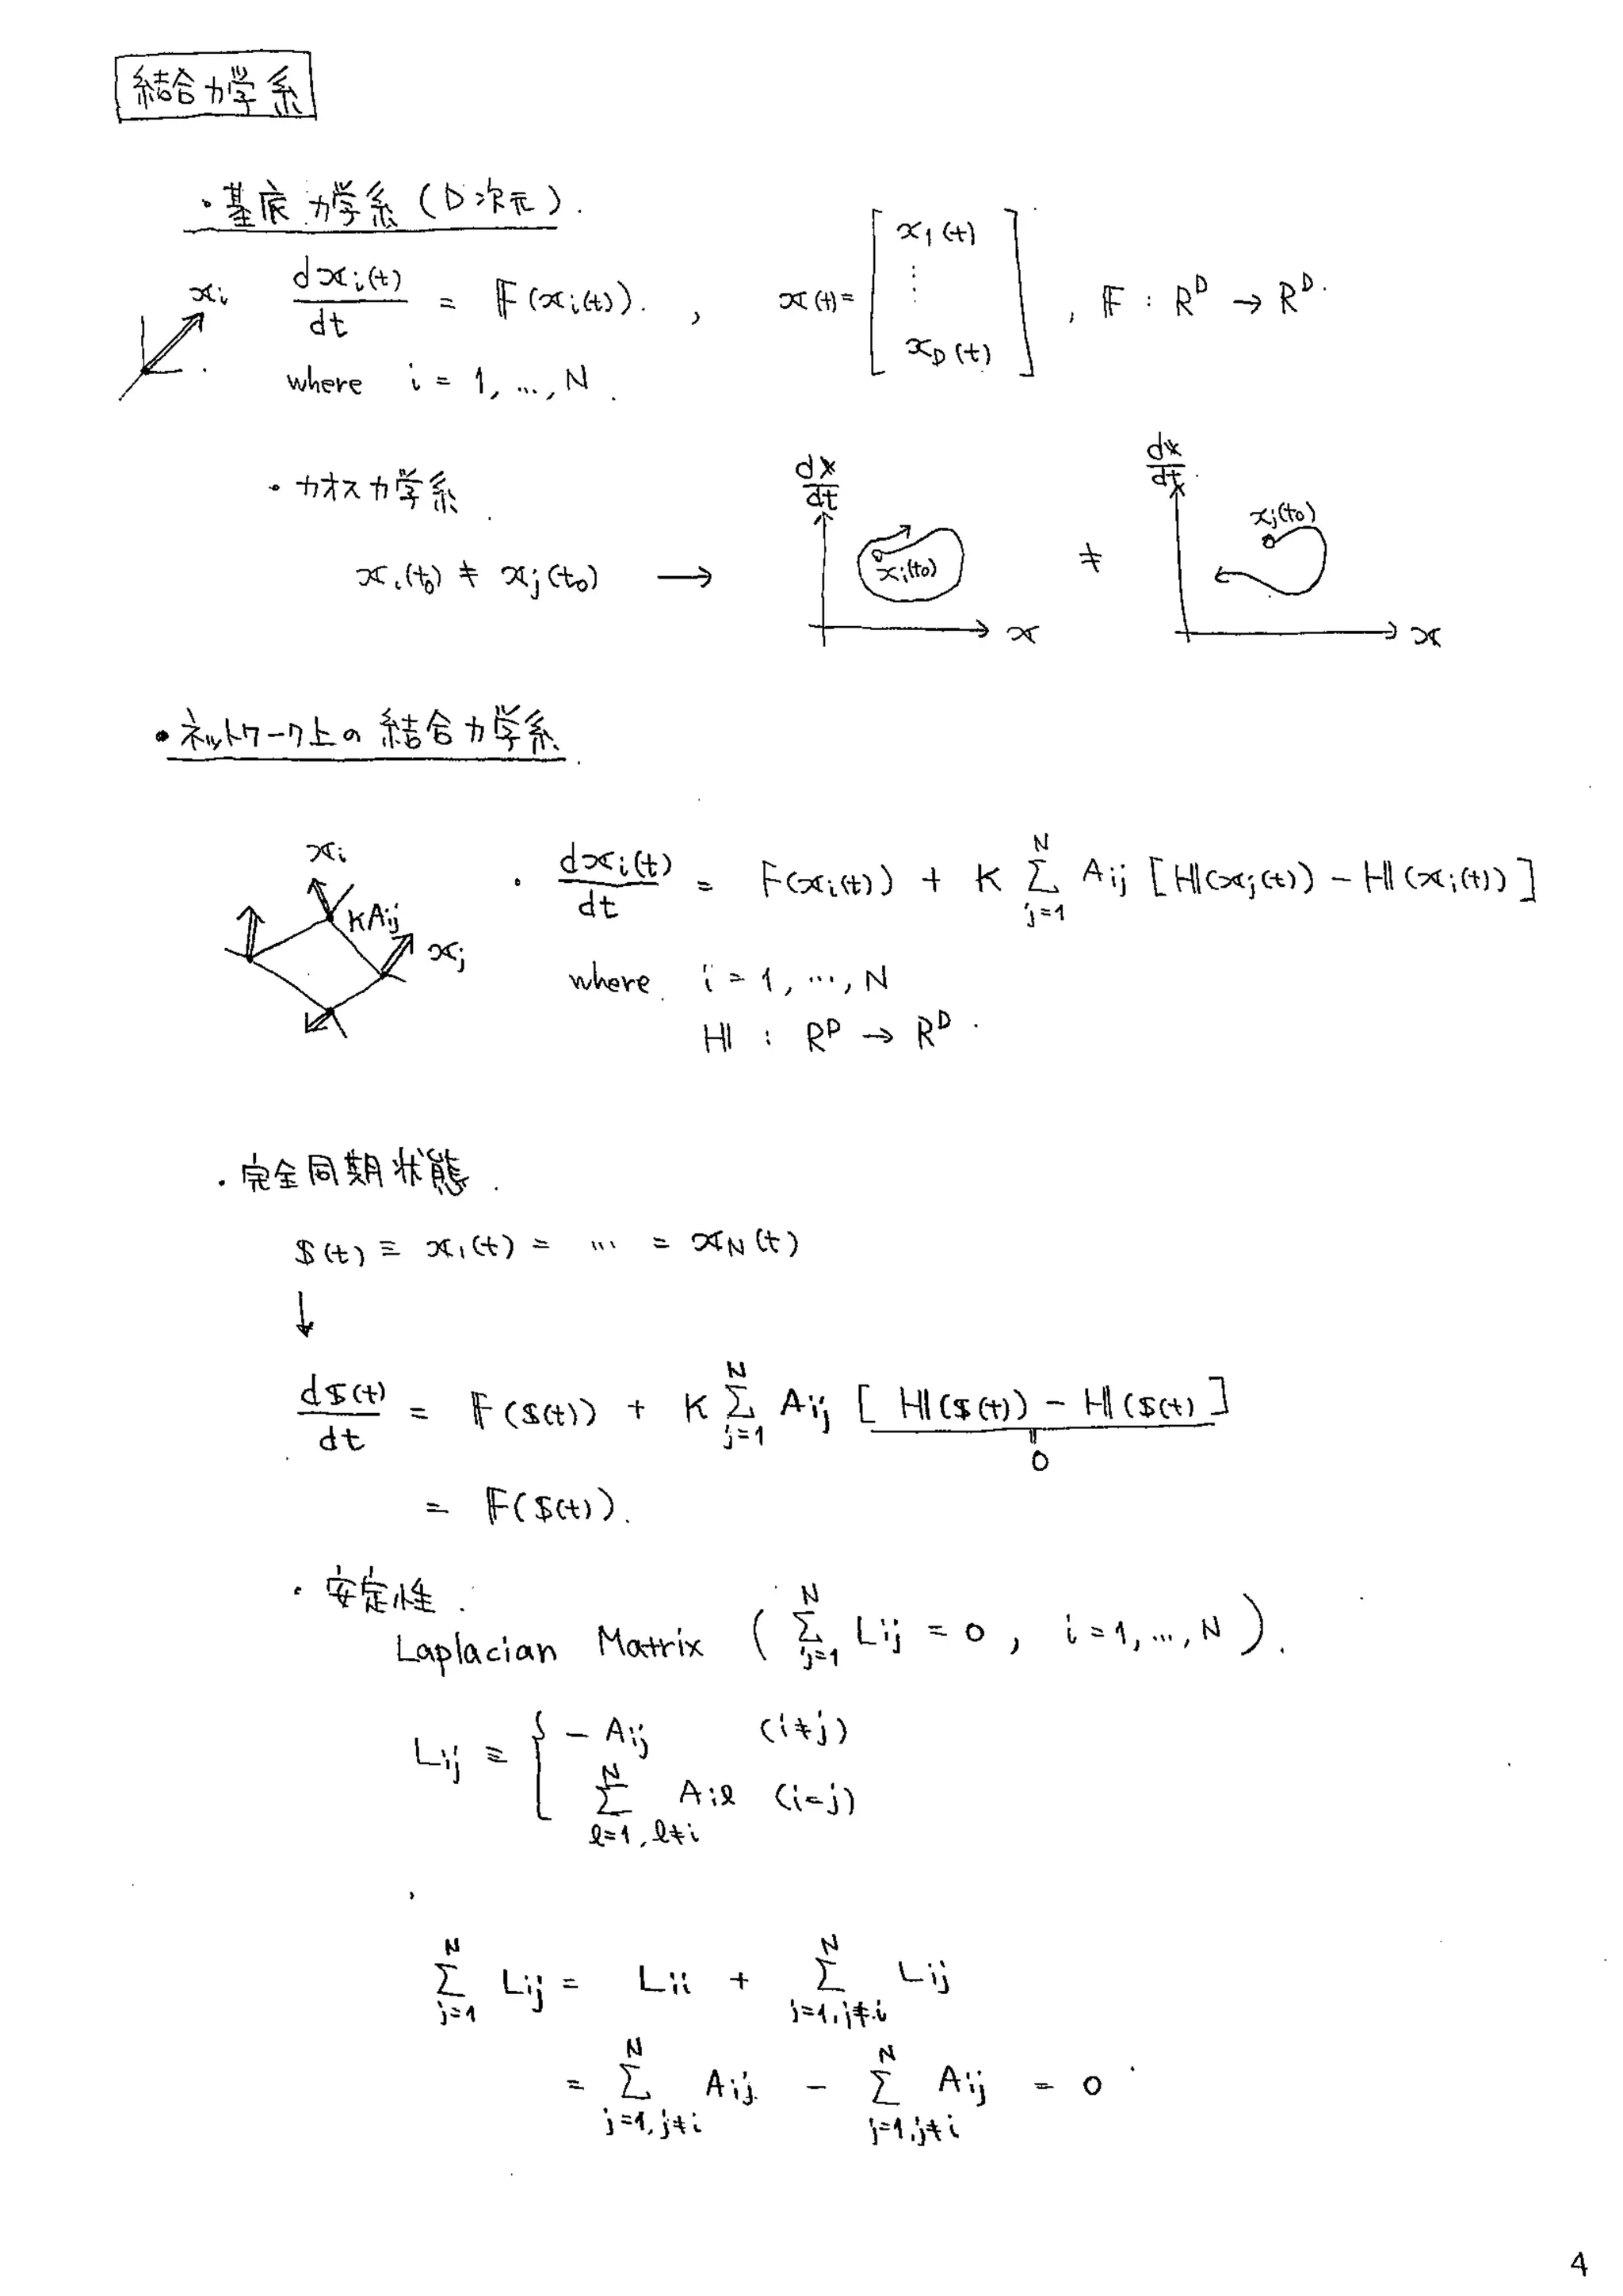 結合力学系
・基底力学系(D次元).
xi dxi(t)/dt = F(xi(t)). , x(t)= [ x1(t) ⋮ xD(t) ] , F : R^D → R^D.
where i = 1, …, N.
・カオス力学系.
xi(t0) ≠ xj(t0) → dx/dt xi(t0) x ≠ dx/dt xj(t0) x
・ネットワーク上の結合力学系.
xi KAij xj
・ dxi(t)/dt = F(xi(t)) + K Σ_{j=1}^{N} Aij [H(xj(t)) − H(xi(t))]
where i = 1, …, N
H : R^D → R^D.
・完全同期状態.
$(t) ≡ x1(t) = … = xN(t)
↓
d$(t)/dt = F($(t)) + K Σ_{j=1}^{N} Aij [ H($(t)) − H($(t) ]
0
= F($(t)).
・安定性.
Laplacian Matrix ( Σ_{j=1}^{N} Lij = 0 , i = 1, …, N ).
Lij ≡ { − Aij (i≠j)
Σ_{l=1, l≠i}^{N} Ail (i=j)
Σ_{j=1}^{N} Lij = Lii + Σ_{j=1, j≠i}^{N} Lij
= Σ_{j=1, j≠i}^{N} Aij − Σ_{j=1, j≠i}^{N} Aij = 0
4